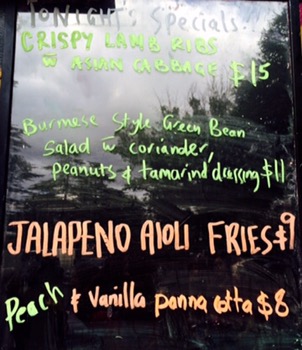 TONIGHT'S Specials!!
CRISPY LAMB RIBS
W ASIAN CABBAGE $15
Burmese Style Green Bean
Salad w coriander,
Peanuts & tamarind dressing $11
JALAPENO AIOLI FRIES $9
Peach & Vanilla panna cotta $8